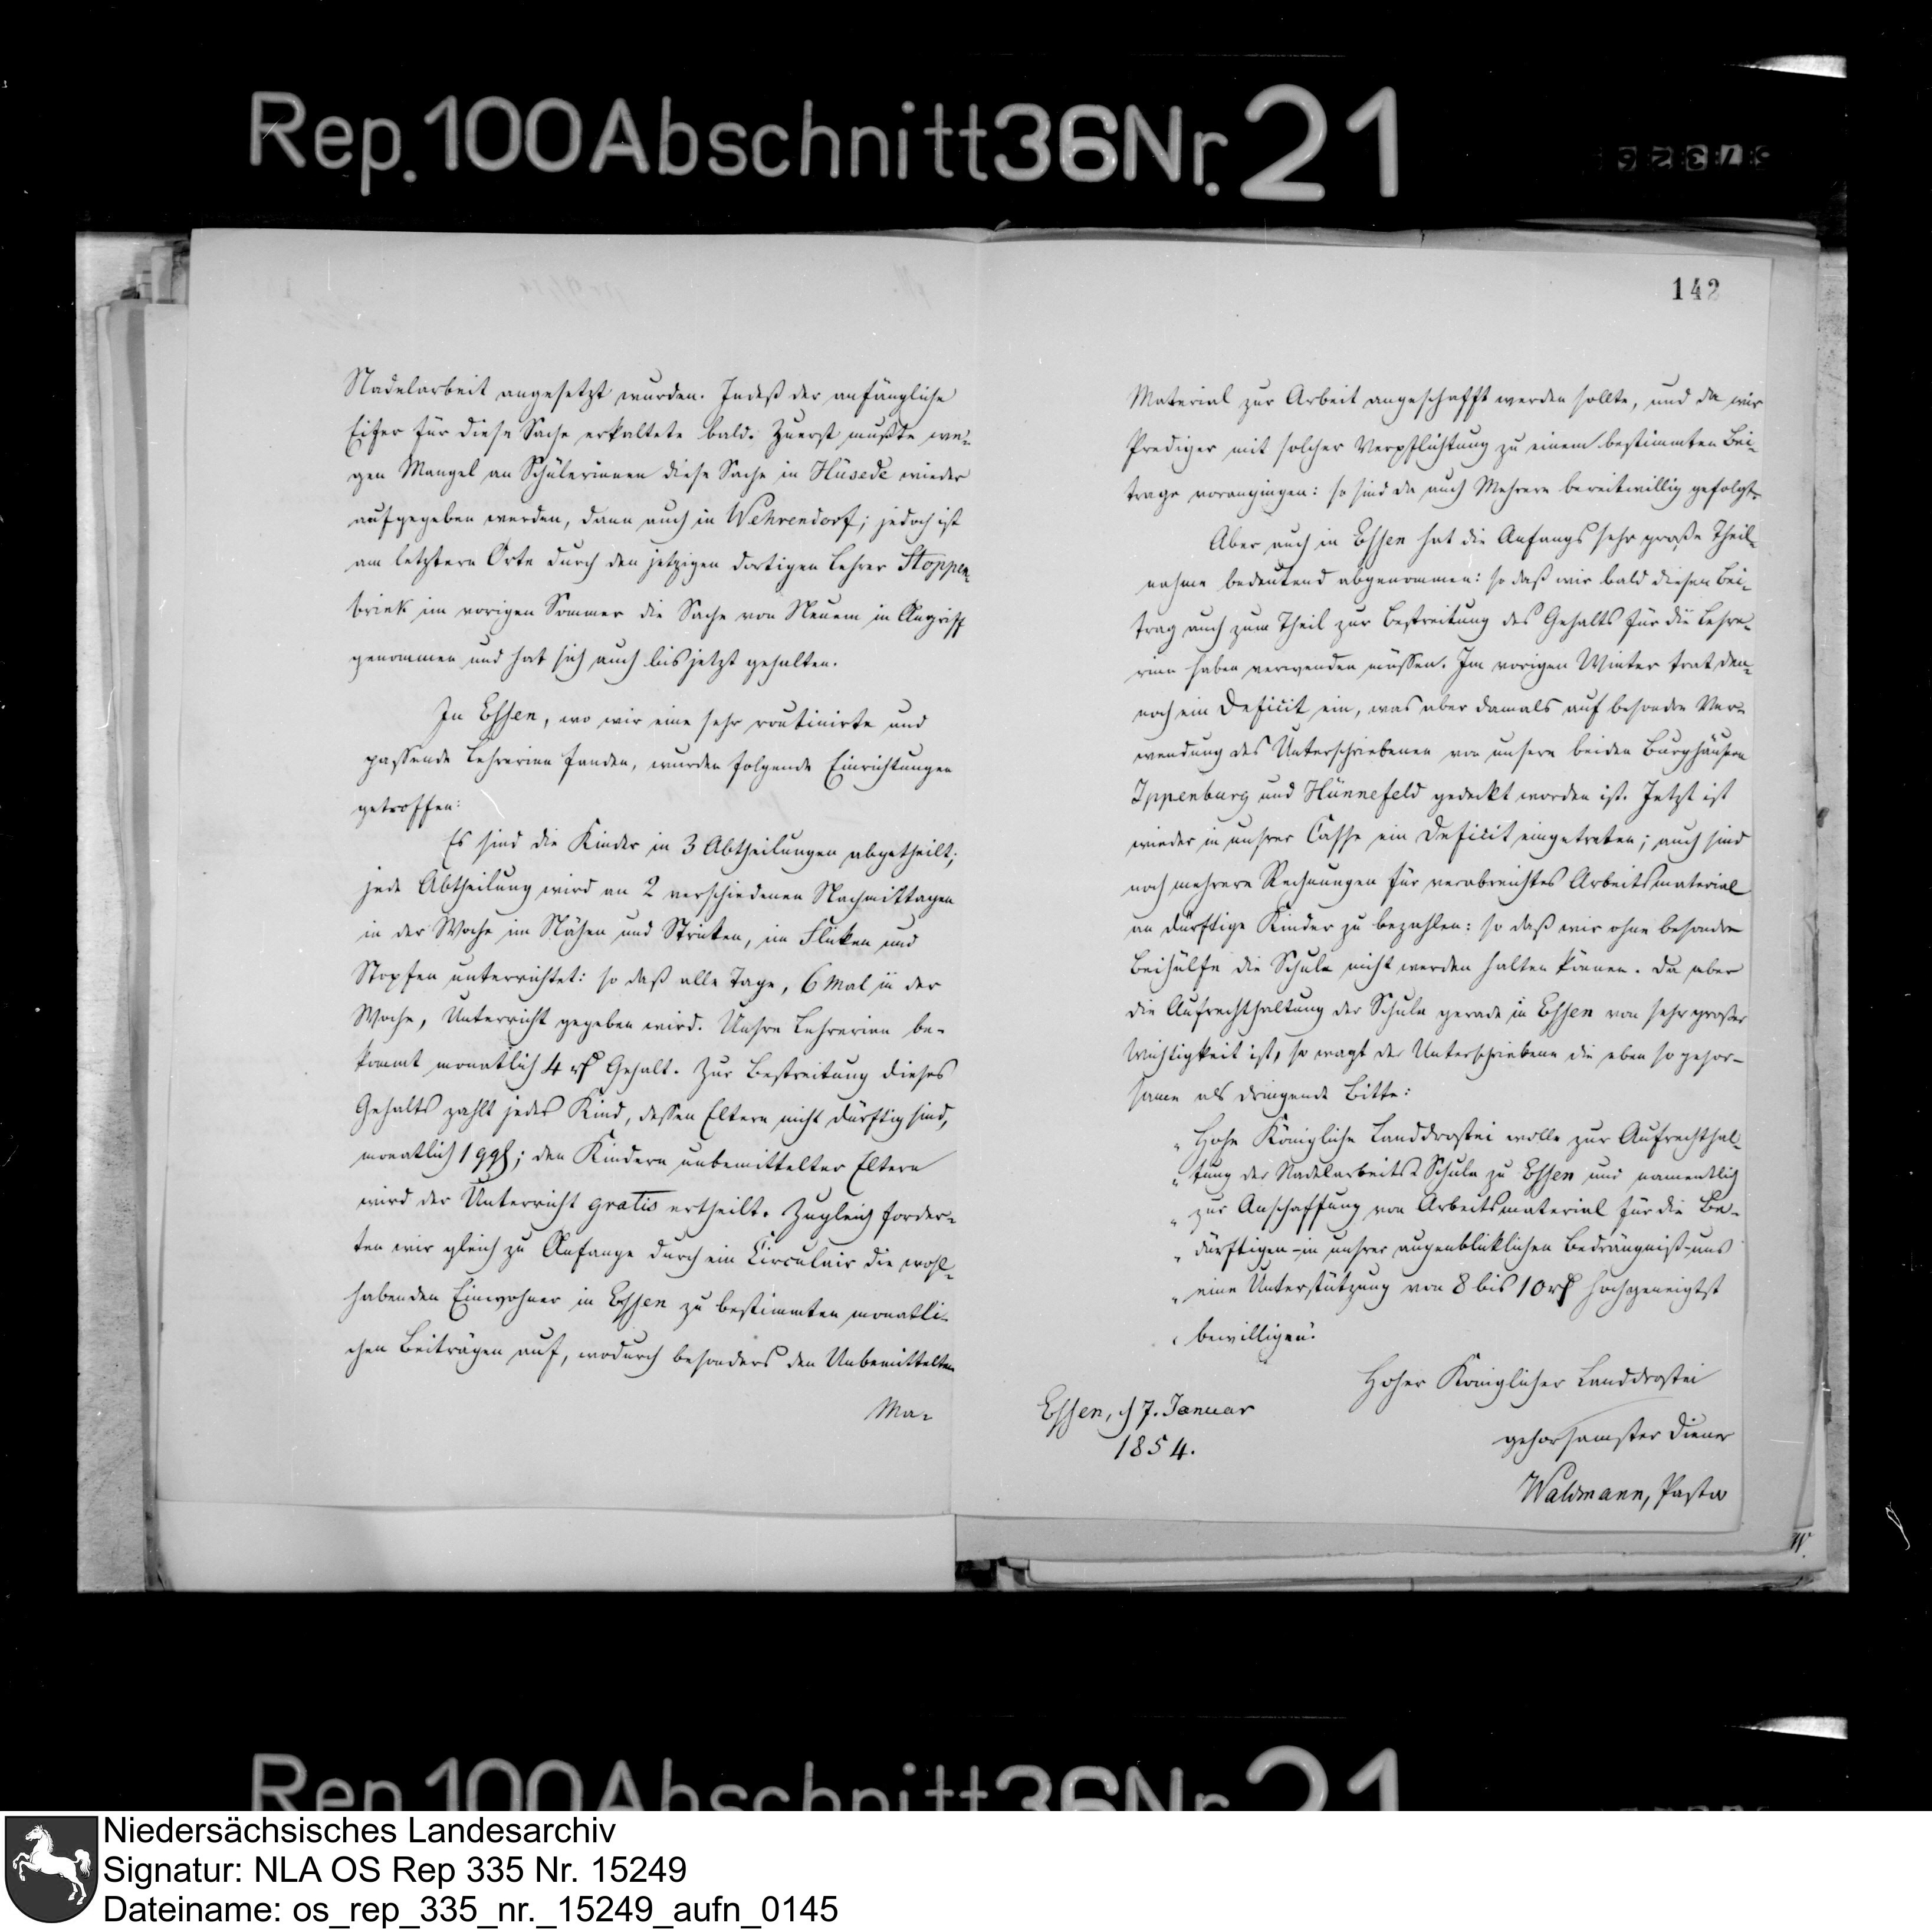 Rep. 100 Abschnitt 36 Nr. 21
142
Nadelarbeit angesetzt wurden. Indeß der anfängliche
Eifer für diese Sache erkaltete bald. Zuerst mußte we-
gen Mangel an Schülerinnen diese Sache in Hüsede wieder
aufgegeben werden, dann auch in Wehrendorf; jedoch ist
am letztern Orte durch den jetzigen dortigen Lehrer Stoppen-
brink im vorigen Sommer die Sache von Neuem in Angriff
genommen und hat sich auch bis jetzt gehalten.
In Essen, wo wir eine sehr routinirte und
passende Lehrerinn fanden, wurden folgende Einrichtungen
getroffen:
Es sind die Kinder in 3 Abtheilungen abgetheilt;
jede Abtheilung wird an 2 verschiedenen Nachmittagen
in der Woche im Nähen und Stricken, im Flicken und
Stopfen unterrichtet: so daß alle Tage, 6 Mal in der
Woche, Unterricht gegeben wird. Unsre Lehrerinn be-
kommt monatlich 4 rß Gehalt. Zur Bestreitung dieses
Gehalts zahlt jedes Kind, dessen Eltern nicht dürftig sind,
monatlich 1 ggl; den Kindern unbemittelter Eltern
wird der Unterricht gratis ertheilt. Zugleich forder-
ten wir gleich zu Anfange durch ein Circulair die wohl-
habenden Einwohner in Essen zu bestimmten monatli-
chen Beiträgen auf, wodurch besonders den Unbemittelten
Ma-
Material zur Arbeit angeschafft werden sollte, und da wir
Prediger mit solcher Verpflichtung zu einem bestimmten Bei-
trage vorangingen: so sind da auch Mehrere bereitwillig gefolgt.
Aber auch in Essen hat die Anfangs sehr große Theil-
nahme bedeutend abgenommen: so daß wir bald diesen Bei-
trag auch zum Theil zur Bestreitung des Gehalts für die Lehre-
rinn haben verwenden müssen. Im vorigen Winter trat den-
noch ein Deficit ein, was aber damals auf besondre Ver-
wendung des Unterschriebenen von unsern beiden Burghäusern
Ippenburg und Hünnefeld gedeckt worden ist. Jetzt ist
wieder in unsrer Casse ein Deficit eingetreten; auch sind
noch mehrere Rechnungen für verabreichtes Arbeitsmaterial
an dürftige Kinder zu bezahlen: so daß wir ohne besondre
Beihülfe die Schule nicht werden halten können. Da aber
die Aufrechthaltung der Schule gerade in Essen von sehr großer
Wichtigkeit ist, so wagt der Unterschriebene die eben so gehor-
same als dringende Bitte:
„Hohe Königliche Landdrostei wolle zur Aufrechthal-
„tung der Nadelarbeits-Schule zu Essen und namentlich
„zur Anschaffung von Arbeitsmaterial für die Be-
„dürftigen – in unsrer augenblicklichen Bedrängniß – uns
„eine Unterstützung von 8 bis 10 rß hochgeneigtst
„bewilligen.“
Hoher Königlicher Landdrostei
Essen, d 7. Januar
1854.
gehorsamster Diener
Waldmann, Pastor
Rep. 100 Abschnitt 36 Nr. 21
Niedersächsisches Landesarchiv
Signatur: NLA OS Rep 335 Nr. 15249
Dateiname: os_rep_335_nr._15249_aufn_0145